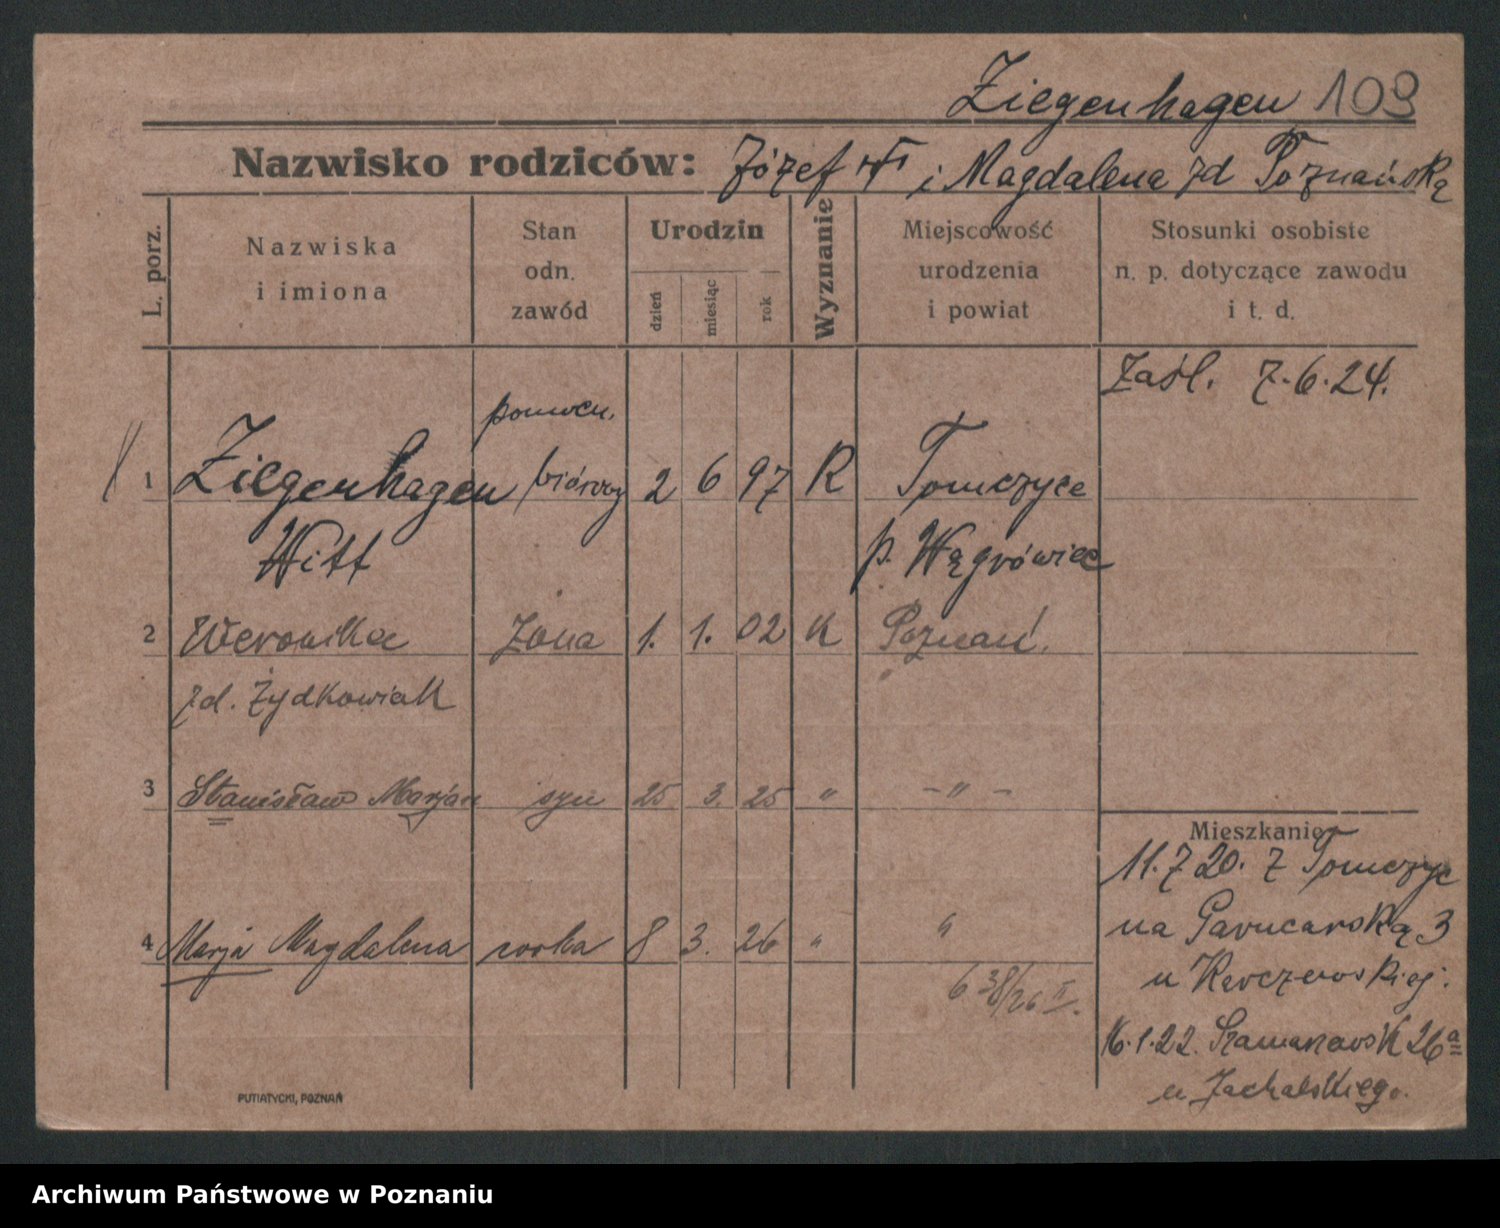 Ziegenhagen 109
Nazwisko rodziców: Józef i Magdalena zd Poznańska
L. porz.
Nazwiska
i imiona
Stan
odn.
zawód
Urodzin
dzień
miesiąc
rok
Wyznanie
Miejscowość
urodzenia
i powiat
Stosunki osobiste
n. p. dotyczące zawodu
i t. d.
Zaśl. 7.6.24.
pomocn.
1 Ziegenhagen biurowy 2 6 97 R Tomczyce
Witt p. Wągrówiec
2 Weronika żona 1. 1. 02 K Poznań.
zd. Żydkowiak
3 Stanisław Marjan syn 25 3. 25 " - " -
Mieszkanie
11.7 20. z Tomczyc
4 Marja Magdalena corka 8 3. 26 " "
na Garncarską 3
u Karczewskiej.
6 38/26 II.
16.1.22. 26a
u
PUTIATYCKI, POZNAŃ
Archiwum Państwowe w Poznaniu